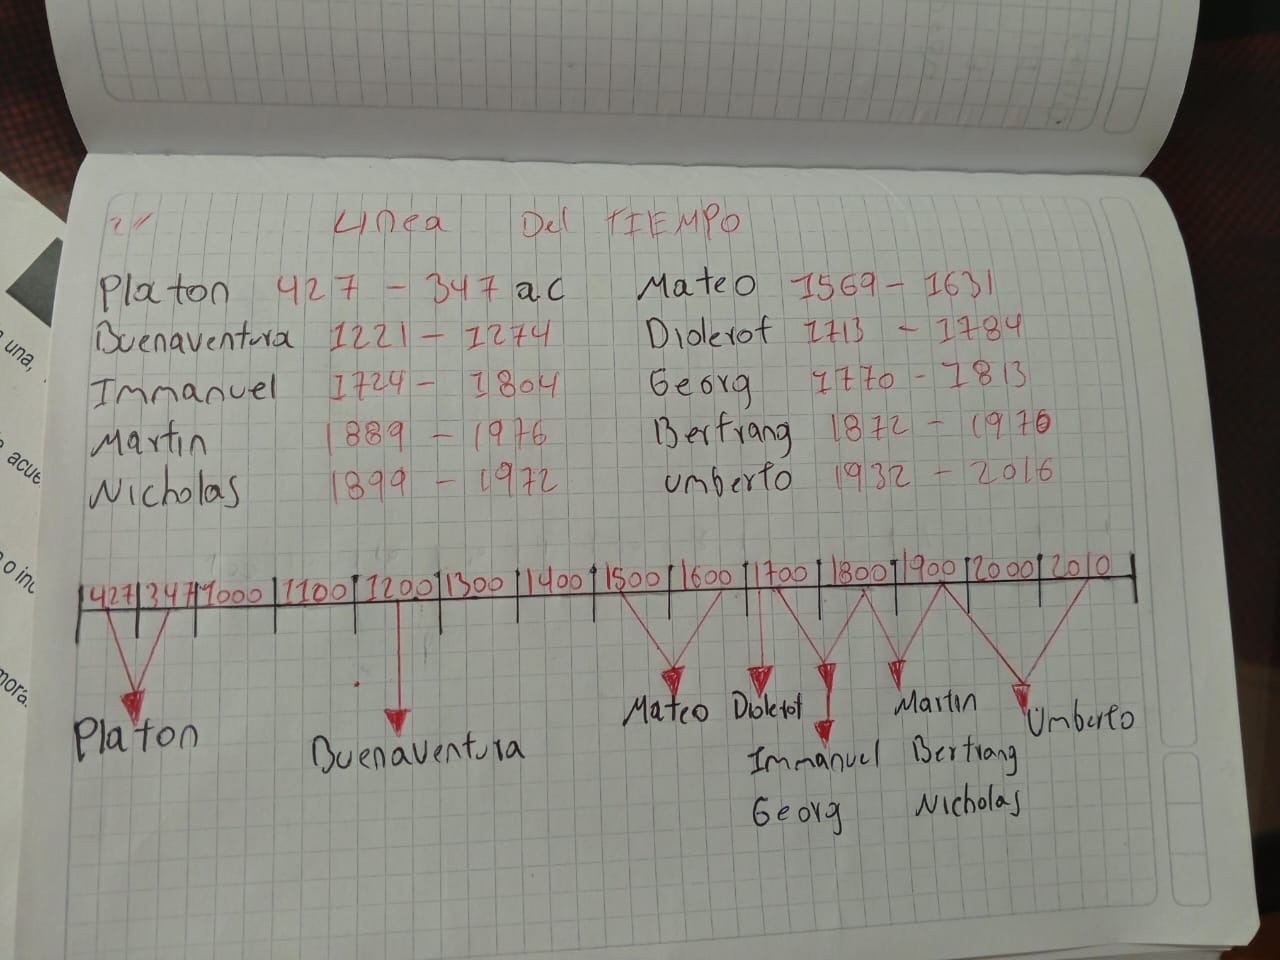 2//
Linea Del TIEMPO
Platon 427 - 347 ac
Buenaventura 1221 - 1274
Immanuel 1724 - 1804
Martin 1889 - 1976
Nicholas 1899 - 1972
Mateo 1569 - 1631
Diolerof 1713 - 1784
Georg 1770 - 1813
Bertrang 1872 - 1970
Umberto 1932 - 2016
427 347 1000 1100 1200 1300 1400 1500 1600 1700 1800 1900 2000 2010
Platon
Buenaventura
Mateo
Diolerof
Immanuel
Georg
Martin
Bertrang
Nicholas
Umberto
una,
acue
o inc
mora.